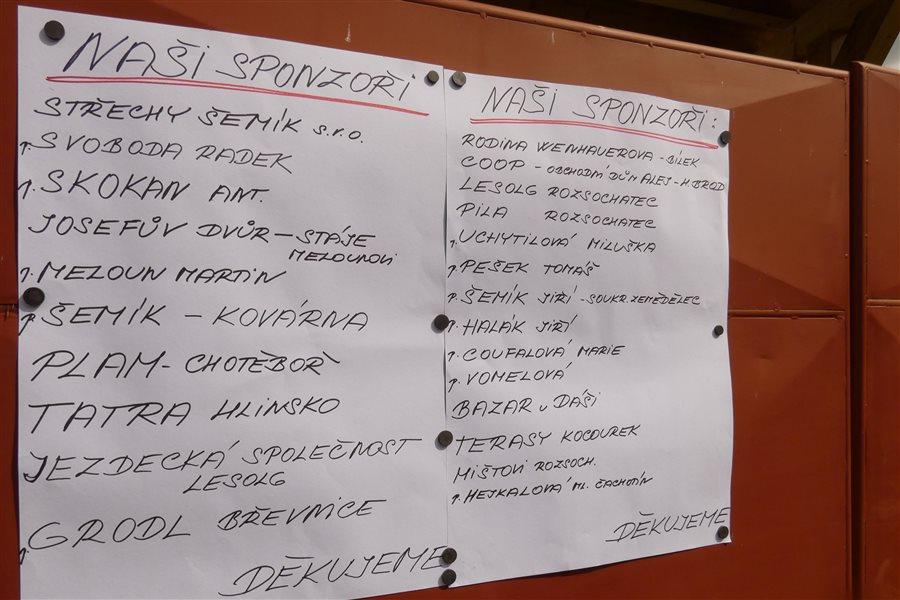 NAŠI SPONZOŘI
STŘECHY ŠEMÍK s.r.o.
p. SVOBODA RADEK
p. SKOKAN ANT.
JOSEFŮV DVŮR – STÁJE
MELOUNOVI
p. MELOUN MARTIN
p. ŠEMÍK – KOVÁRNA
PLAM – CHOTĚBOŘ
TATRA HLINSKO
JEZDECKÁ SPOLEČNOST
LESOLG
p. GRODL BŘEVNICE
DĚKUJEME
NAŠI SPONZOŘI:
RODINA WENHAUEROVA – BÍLEK
COOP – OBCHODNÍ DŮM ALEJ – H. BROD
LESOLG ROZSOCHATEC
PILA ROZSOCHATEC
p. UCHYTILOVÁ MILUŠKA
p. PEŠEK TOMÁŠ
p. ŠEMÍK JIŘÍ – SOUKR. ZEMĚDĚLEC
p. HALÁK JIŘÍ
p. COUFALOVÁ MARIE
p. VOMELOVÁ
BAZAR u DÁŠI
TERASY KOCOUREK
MIŠTOVI ROZSOCH.
p. HEJKALOVÁ ML. ČACHOTÍN
DĚKUJEME